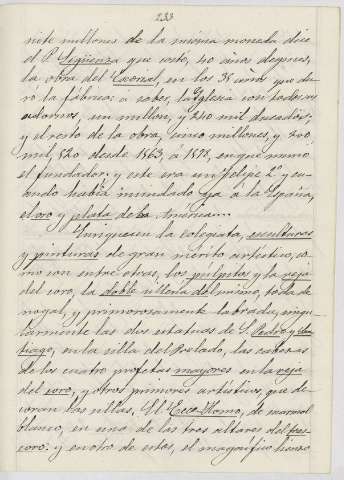 233
siete millones de la misma moneda dice
el P. Sigüenza que costó, 40 años despues,
la obra del Escorial, en los 38 años que du-
ró la fábrica: a saber, la Iglesia con todos sus
adornos, un millon, y 240 mil ducados;
y el resto de la obra, cinco millones, y 200
mil, 820 desde 1563, á 1598, en que murió
el fundador: y este era un Felipe 2º y cu-
ando había inundado ya á la España,
el oro y plata de la América...
Enriquecen la colegiata, esculturas
y pinturas de gran mérito artístico, co-
mo son entre otras, los pulpitos y la reja
del coro, la doble sillería del mismo, toda de
nogal, y primorosamente labrada, singu-
larmente las dos estatuas de S. Pedro y San-
tiago, en la silla del Prelado, las cabezas
de los cuatro profetas mayores en la reja
del coro, y otros primores artísticos, que de-
coran las sillas, El Ecce-Homo, de marmol
blanco, en uno de los tres altares del tras-
coro: y en otro de estos, el magnífico lienzo